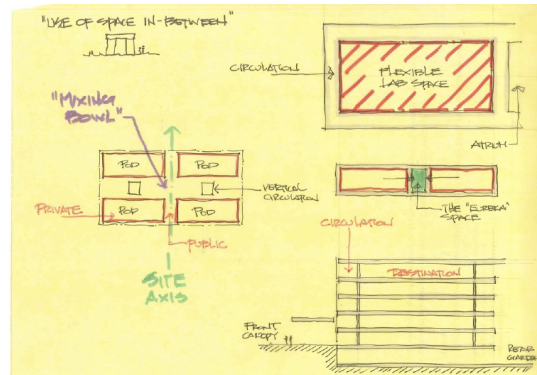 "USE OF SPACE IN-BETWEEN"
"MIXING
BOWL"
POD
POD
POD
POD
VERTICAL
CIRCULATION
PRIVATE
PUBLIC
SITE
AXIS
CIRCULATION
FLEXIBLE
LAB SPACE
ATRIUM
THE "EUREKA"
SPACE
CIRCULATION
DESTINATION
FRONT
CANOPY
REAR
GARDEN